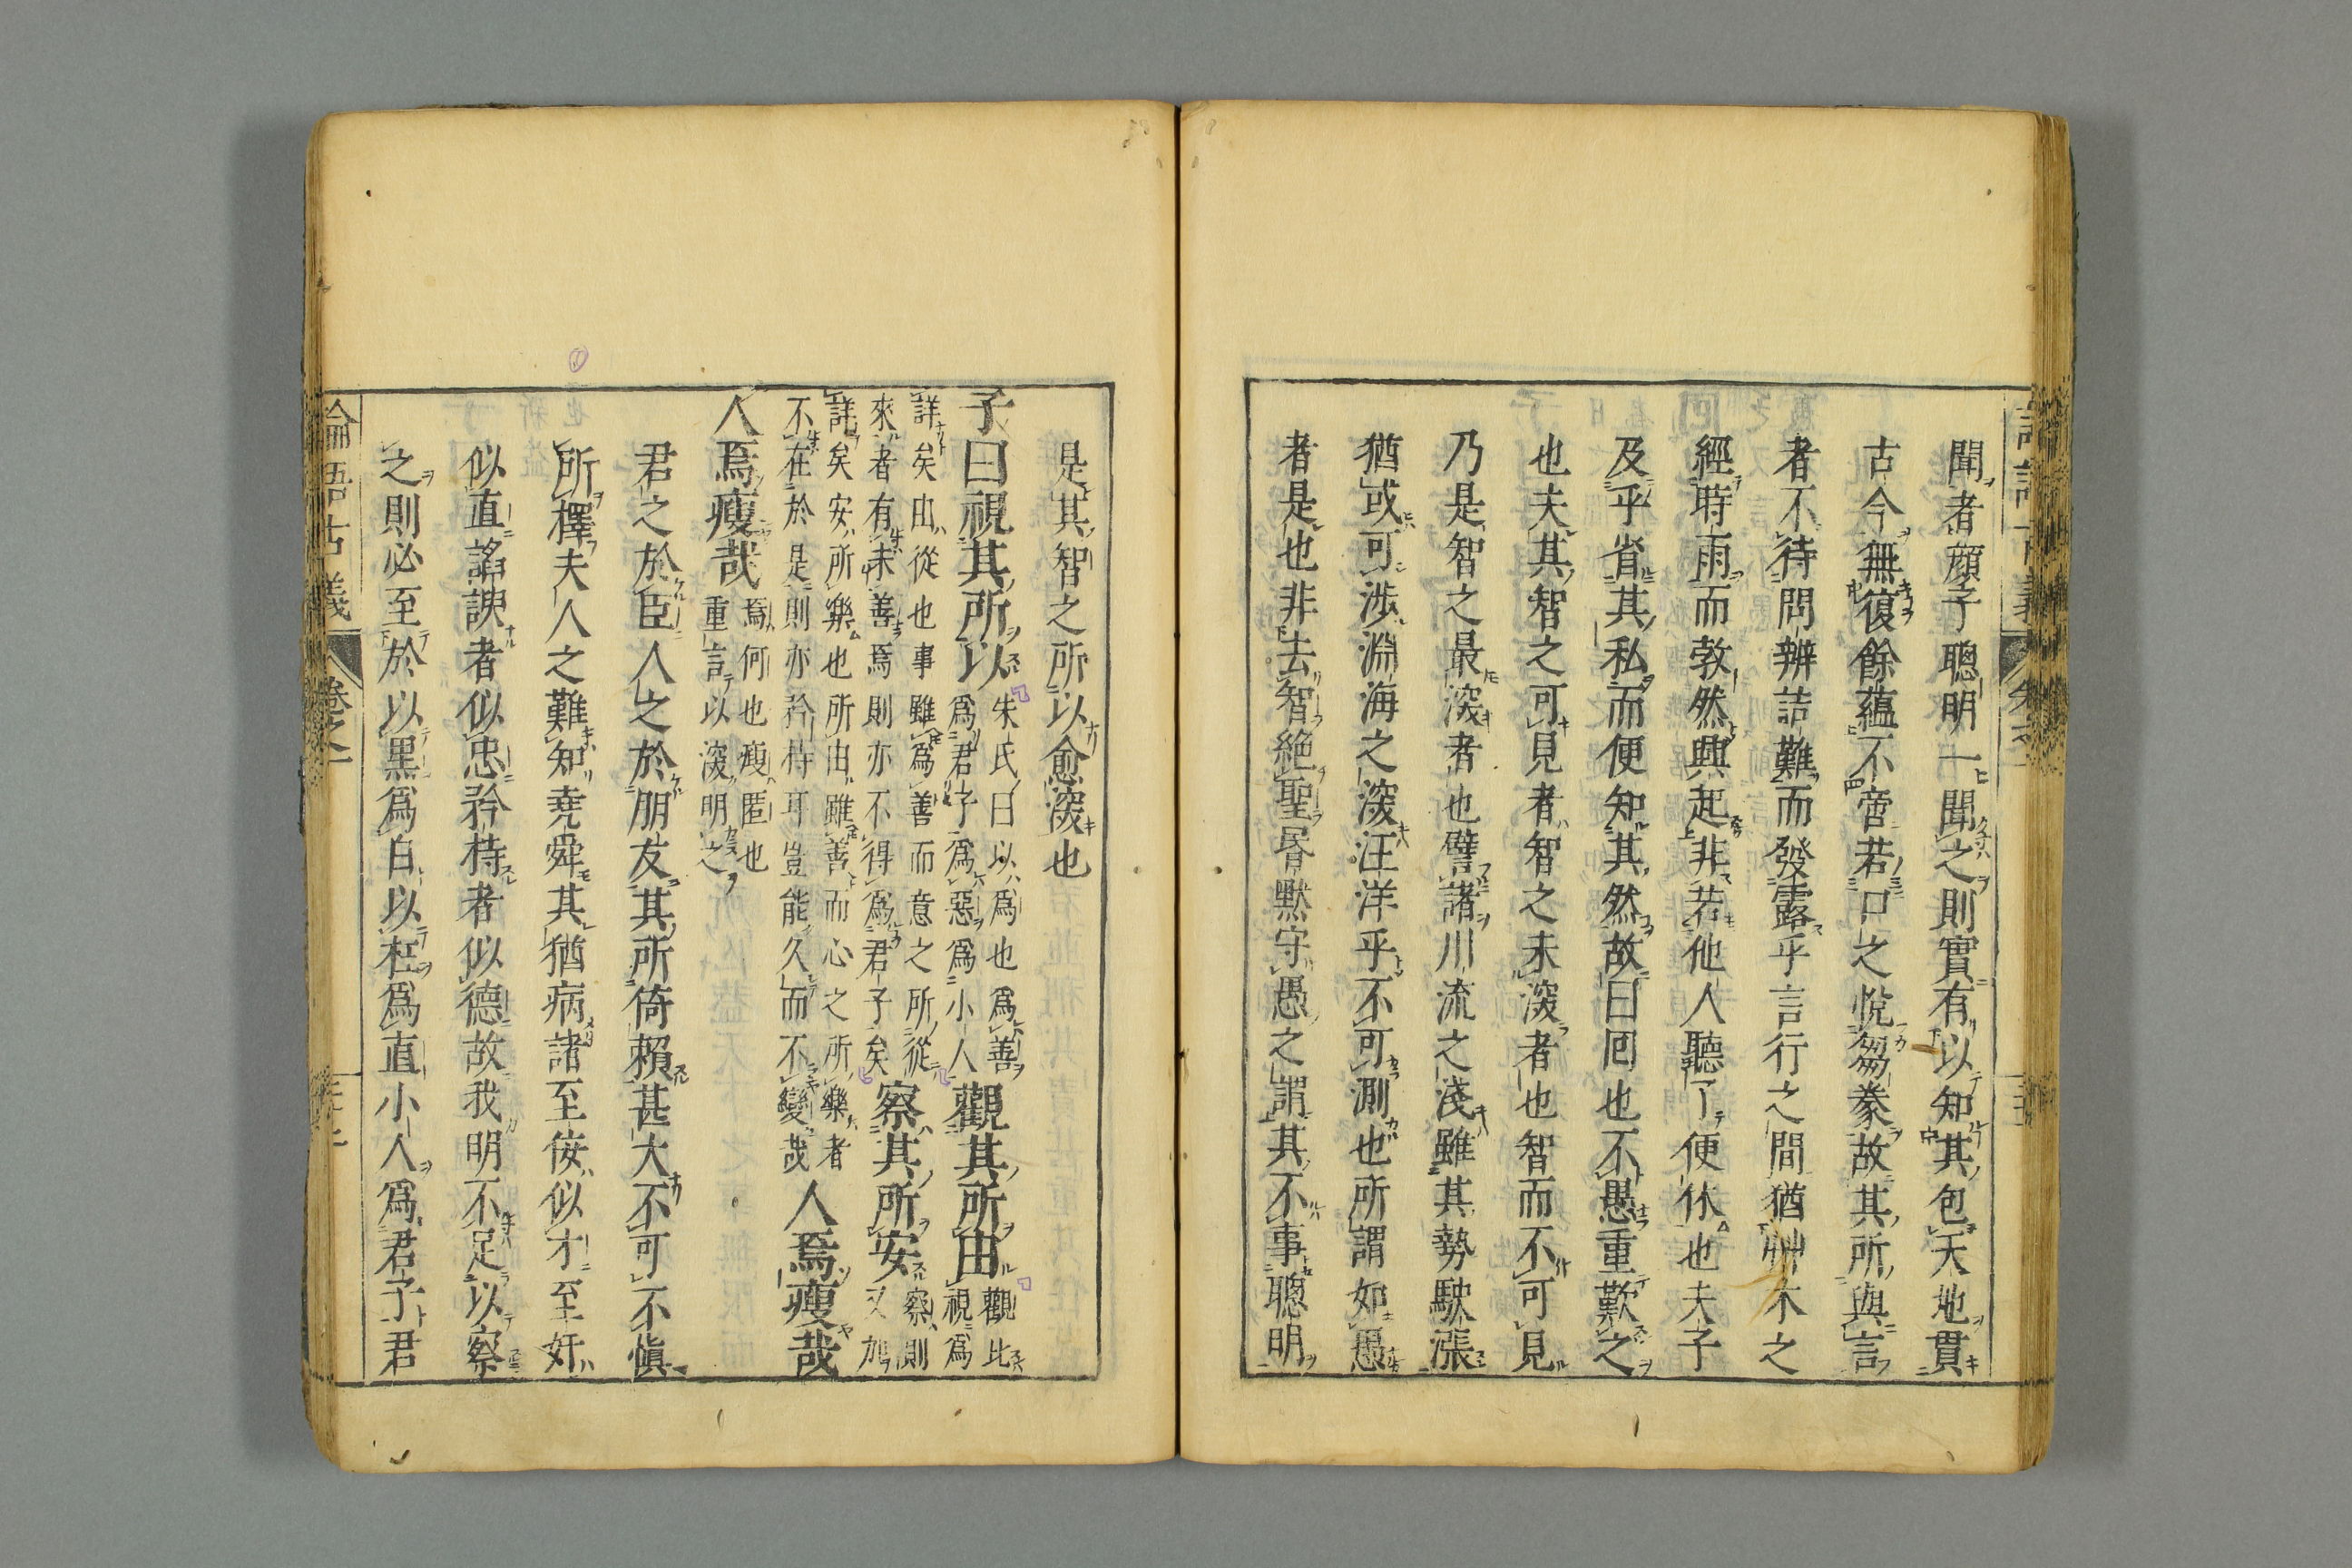 聞者顔子聰明一聞之則實有以知其包天地貫
古今無復餘蘊不啻若口之悅芻豢故其所與言
者不待問辨詰難而發露乎言行之間猶艸木之
經時雨而敦然興起非若他人聽了便休也夫子
及乎省其私而便知其然故曰回也不愚重歎之
也夫其智之可見者智之未深者也智而不可見
乃是智之最深者也譬諸川流之淺雖其勢駛漲
猶或可渉淵海之深汪洋乎不可測也所謂如愚
者是也非去智絶聖昬默守愚之謂其不事聰明
是其智之所以愈深也
子曰視其所以
朱氏曰以爲也爲善
爲君子爲惡爲小人
觀其所由
觀比視爲
詳矣由從也事雖爲善而意之所從
來者有未善焉則亦不得爲君子矣
察其所安
察則又加
詳矣安所樂也所由雖善而心之所樂者
不在於是則亦矜持耳豈能久而不變哉
人焉廋哉
人焉廋哉
焉何也廋匿也
重言以深明之
君之於臣人之於朋友其所倚賴甚大不可不愼
所擇夫人之難知堯舜其猶病諸至佞似才至奸
似直諂諛者似忠矜持者似德故我明不足以察
之則必至於以黒爲白以枉爲直小人爲君子君
論語古義
卷之一